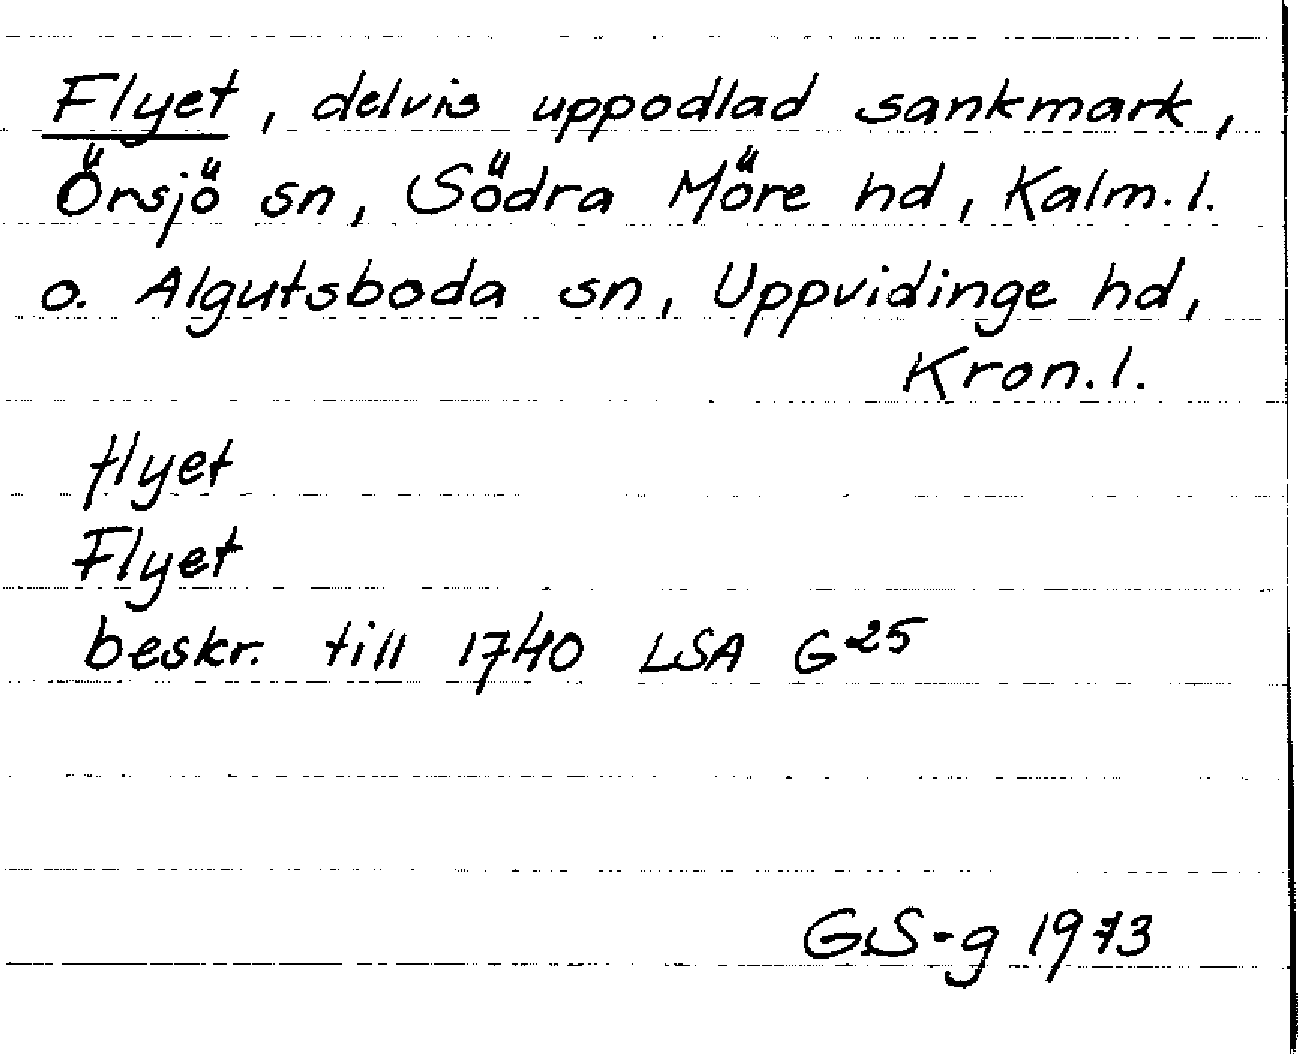 Flyet, delvis uppodlad sankmark,
Örsjö sn, Södra Möre hd, Kalm. l.
o. Algutsboda sn, Uppvidinge hd,
Kron. l.
flyet
Flyet
beskr. till 1740 LSA G25
GS-g 1973